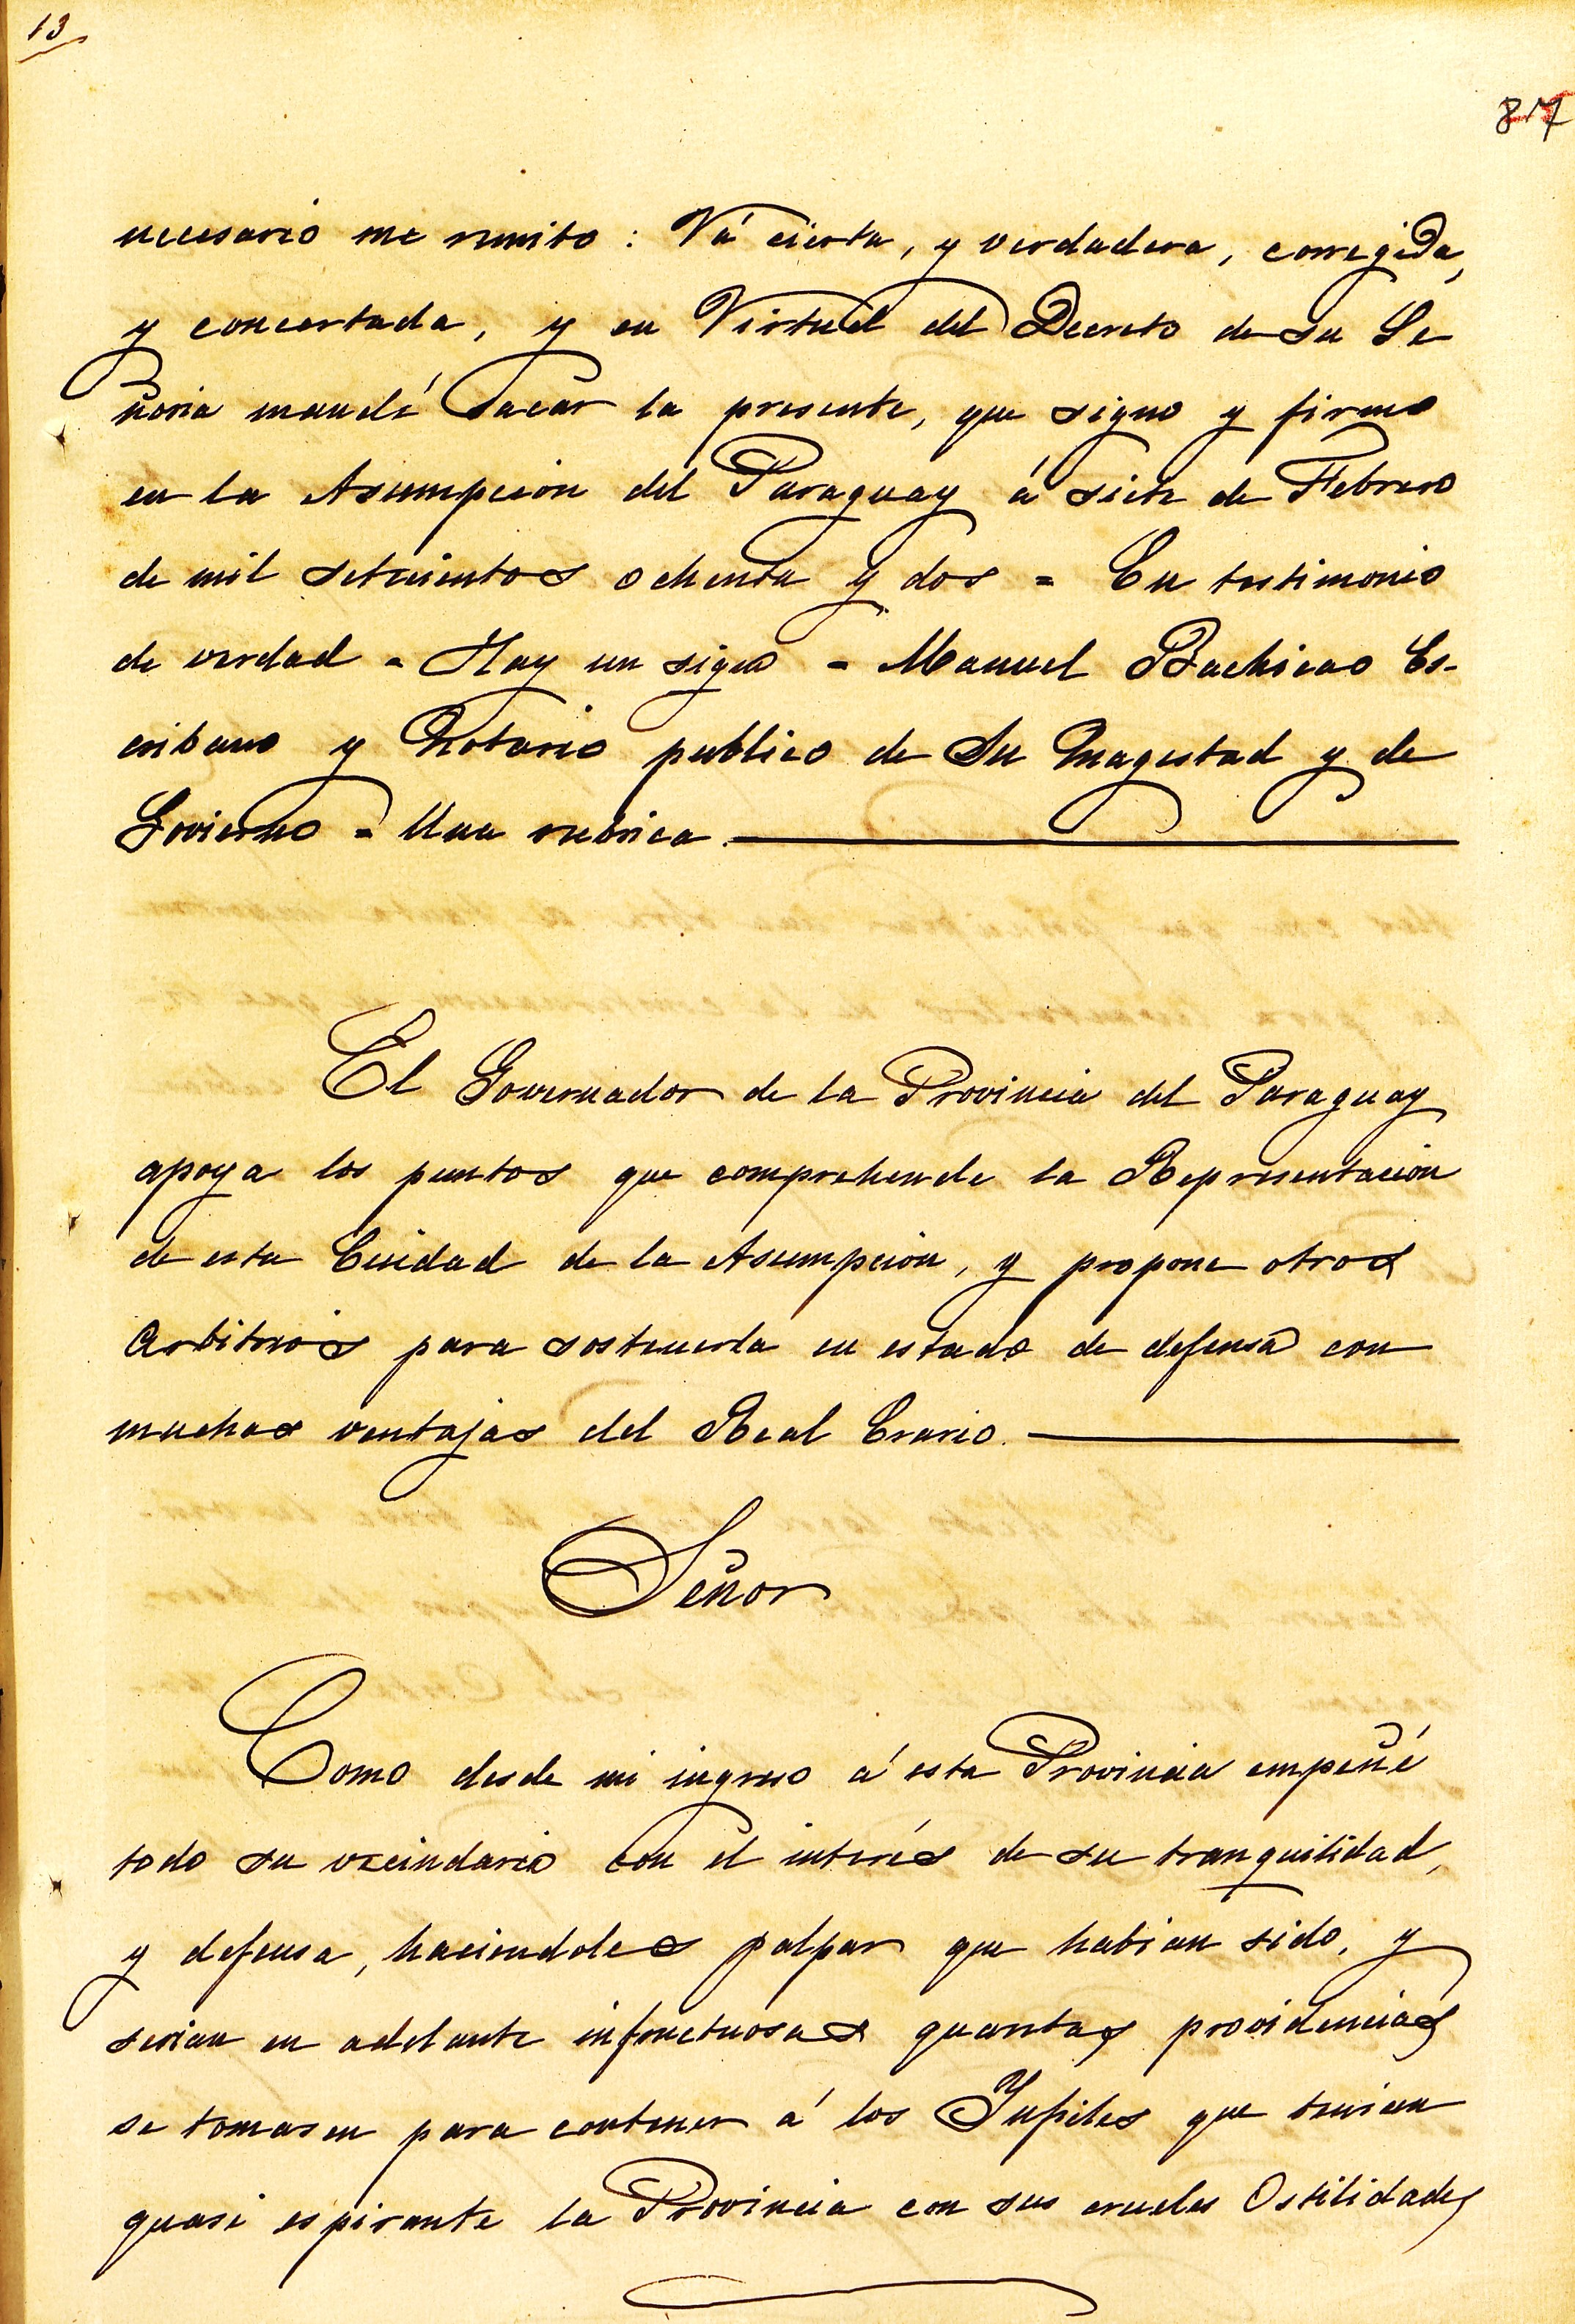 13
87
necesario me remito: Vá cierta, y verdadera, corregida,
y concertada, y en Virtud del Decreto de su Se
ñoria mandé sacar la presente, que signo y firmo
en la Asumpcion del Paraguay á siete de Febrero
de mil setecientos ochenta y dos = En testimonio
de verdad = Hay un signo = Manuel Bachicao Es-
cribano y Notario publico de Su Magestad y de
Govierno = Una rubrica.
El Governador de la Provincia del Paraguay
apoya los puntos que comprehende la Representacion
de esta Ciudad de la Asumpcion, y propone otros
Arbitrios para sostenerla en estado de defensa con
muchas ventajas del Real Erario.
Señor
Como desde mi ingreso á esta Provincia empeñé
todo su vecindario con el interés de su tranquilidad,
y defensa, haciendoles palpar que habian sido, y
serian en adelante infructuosas quantas providencias
se tomasen para contener á los Ynfieles que tenian
quasi espirante la Provincia con sus crueles Ostilidades